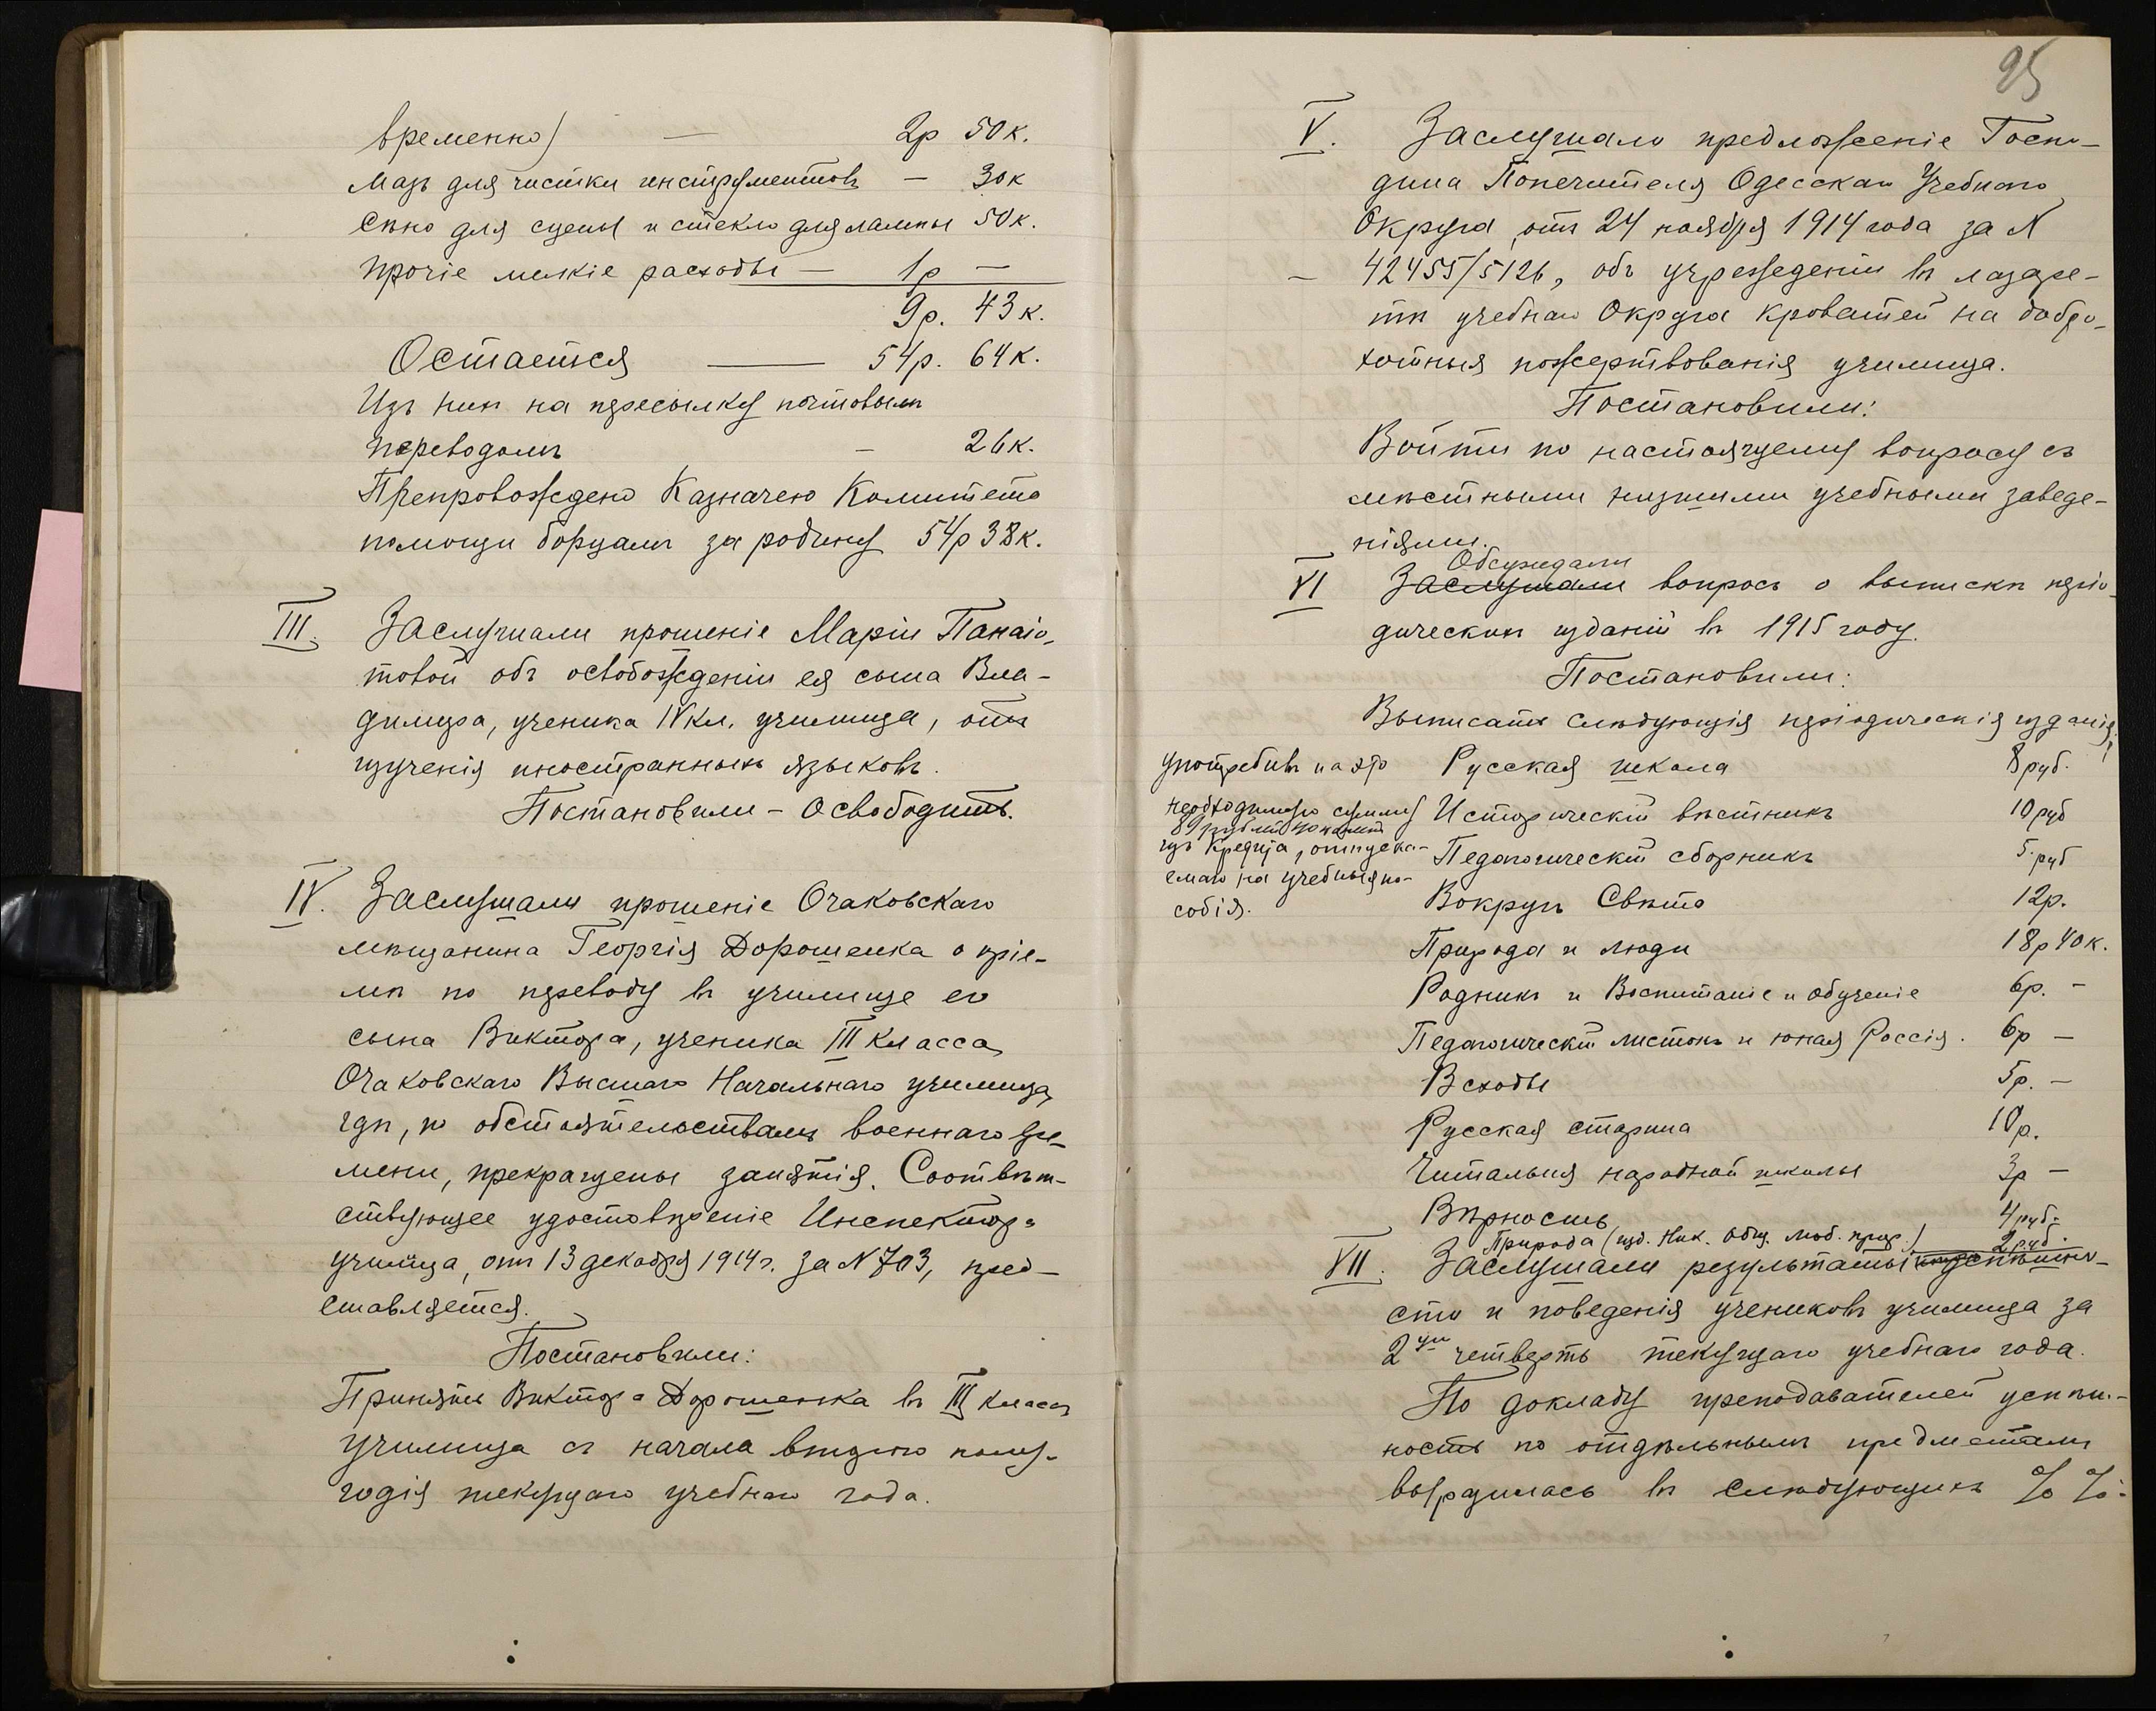 временно) — 2р 50к.
Мазь для чистки инструментовъ — 30к
Сѣно для сцены и стекло для лампы 50к.
Прочіе мелкіе расходы — 1р —
9р. 43к.
Остается — 54р. 64к.
Изъ нихъ на пересылку почтовымъ
переводомъ — 26к.
Препровождено Казначею Комитета
помощи борцамъ за родину 54р 38к.
III. Заслушали прошеніе Маріи Панаіо-
товой объ освобожденіи ея сына Вла-
димира, ученика IV кл. училища, отъ
изученія иностранныхъ языковъ.
Постановили – Освободить.
IV. Заслушали прошеніе Очаковскаго
мѣщанина Георгія Дорошенка о пріе-
мѣ по переводу въ училище его
сына Виктора, ученика III класса
Очаковскаго Высшаго Начальнаго училища,
гдѣ, по обстоятельствамъ военнаго вре-
мени, прекращены занятія. Соотвѣт-
ствующее удостовѣреніе Инспектора
училища, отъ 13 декабря 1914 г. за N 703, пред-
ставляется.
Постановили:
Принять Виктора Дорошенка въ III классъ
училища съ начала второго полу-
годія текущаго учебнаго года.
95
V. Заслушали предложеніе Госпо-
дина Попечителя Одесскаго Учебнаго
Округа, отъ 24 ноября 1914 года за N
— 42455/5126, объ учрежденіи въ лазаре-
тѣ учебнаго Округа кроватей на добро-
хотныя пожертвованія училища.
Постановили:
Войти по настоящему вопросу съ
мѣстными низшими учебными заведе-
ніями.
Обсуждали
VI Заслушали вопросъ о выпискѣ періо-
дическихъ изданій въ 1915 году.
Постановили:
Выписать слѣдующія періодическія изданія,
употребивъ на это
необходимую сумму
89 рублей 40 копѣекъ
изъ кредита, отпуска-
емаго на учебныя по-
собія.
Русская школа 8 руб.
Историческій вѣстникъ 10 руб
Педагогическій сборникъ 5 руб
Вокругъ Свѣта 12р.
Природа и люди 18р 40к.
Родникъ и Воспитаніе и обученіе 6р. –
Педагогическій листокъ и юная Россія. 6р –
Всходы 5р. –
Русская старина 10р.
Читальня народной школы 3р –
Вѣрность 4 руб.
Природа (изд. Ник. Общ. люб. прир.) 2 руб.
VII. Заслушали результаты успѣшно-
сти и поведенія учениковъ училища за
2ую четверть текущаго учебнаго года.
По докладу преподавателей успѣш-
ность по отдѣльнымъ предметамъ
выразилась въ слѣдующихъ % %: